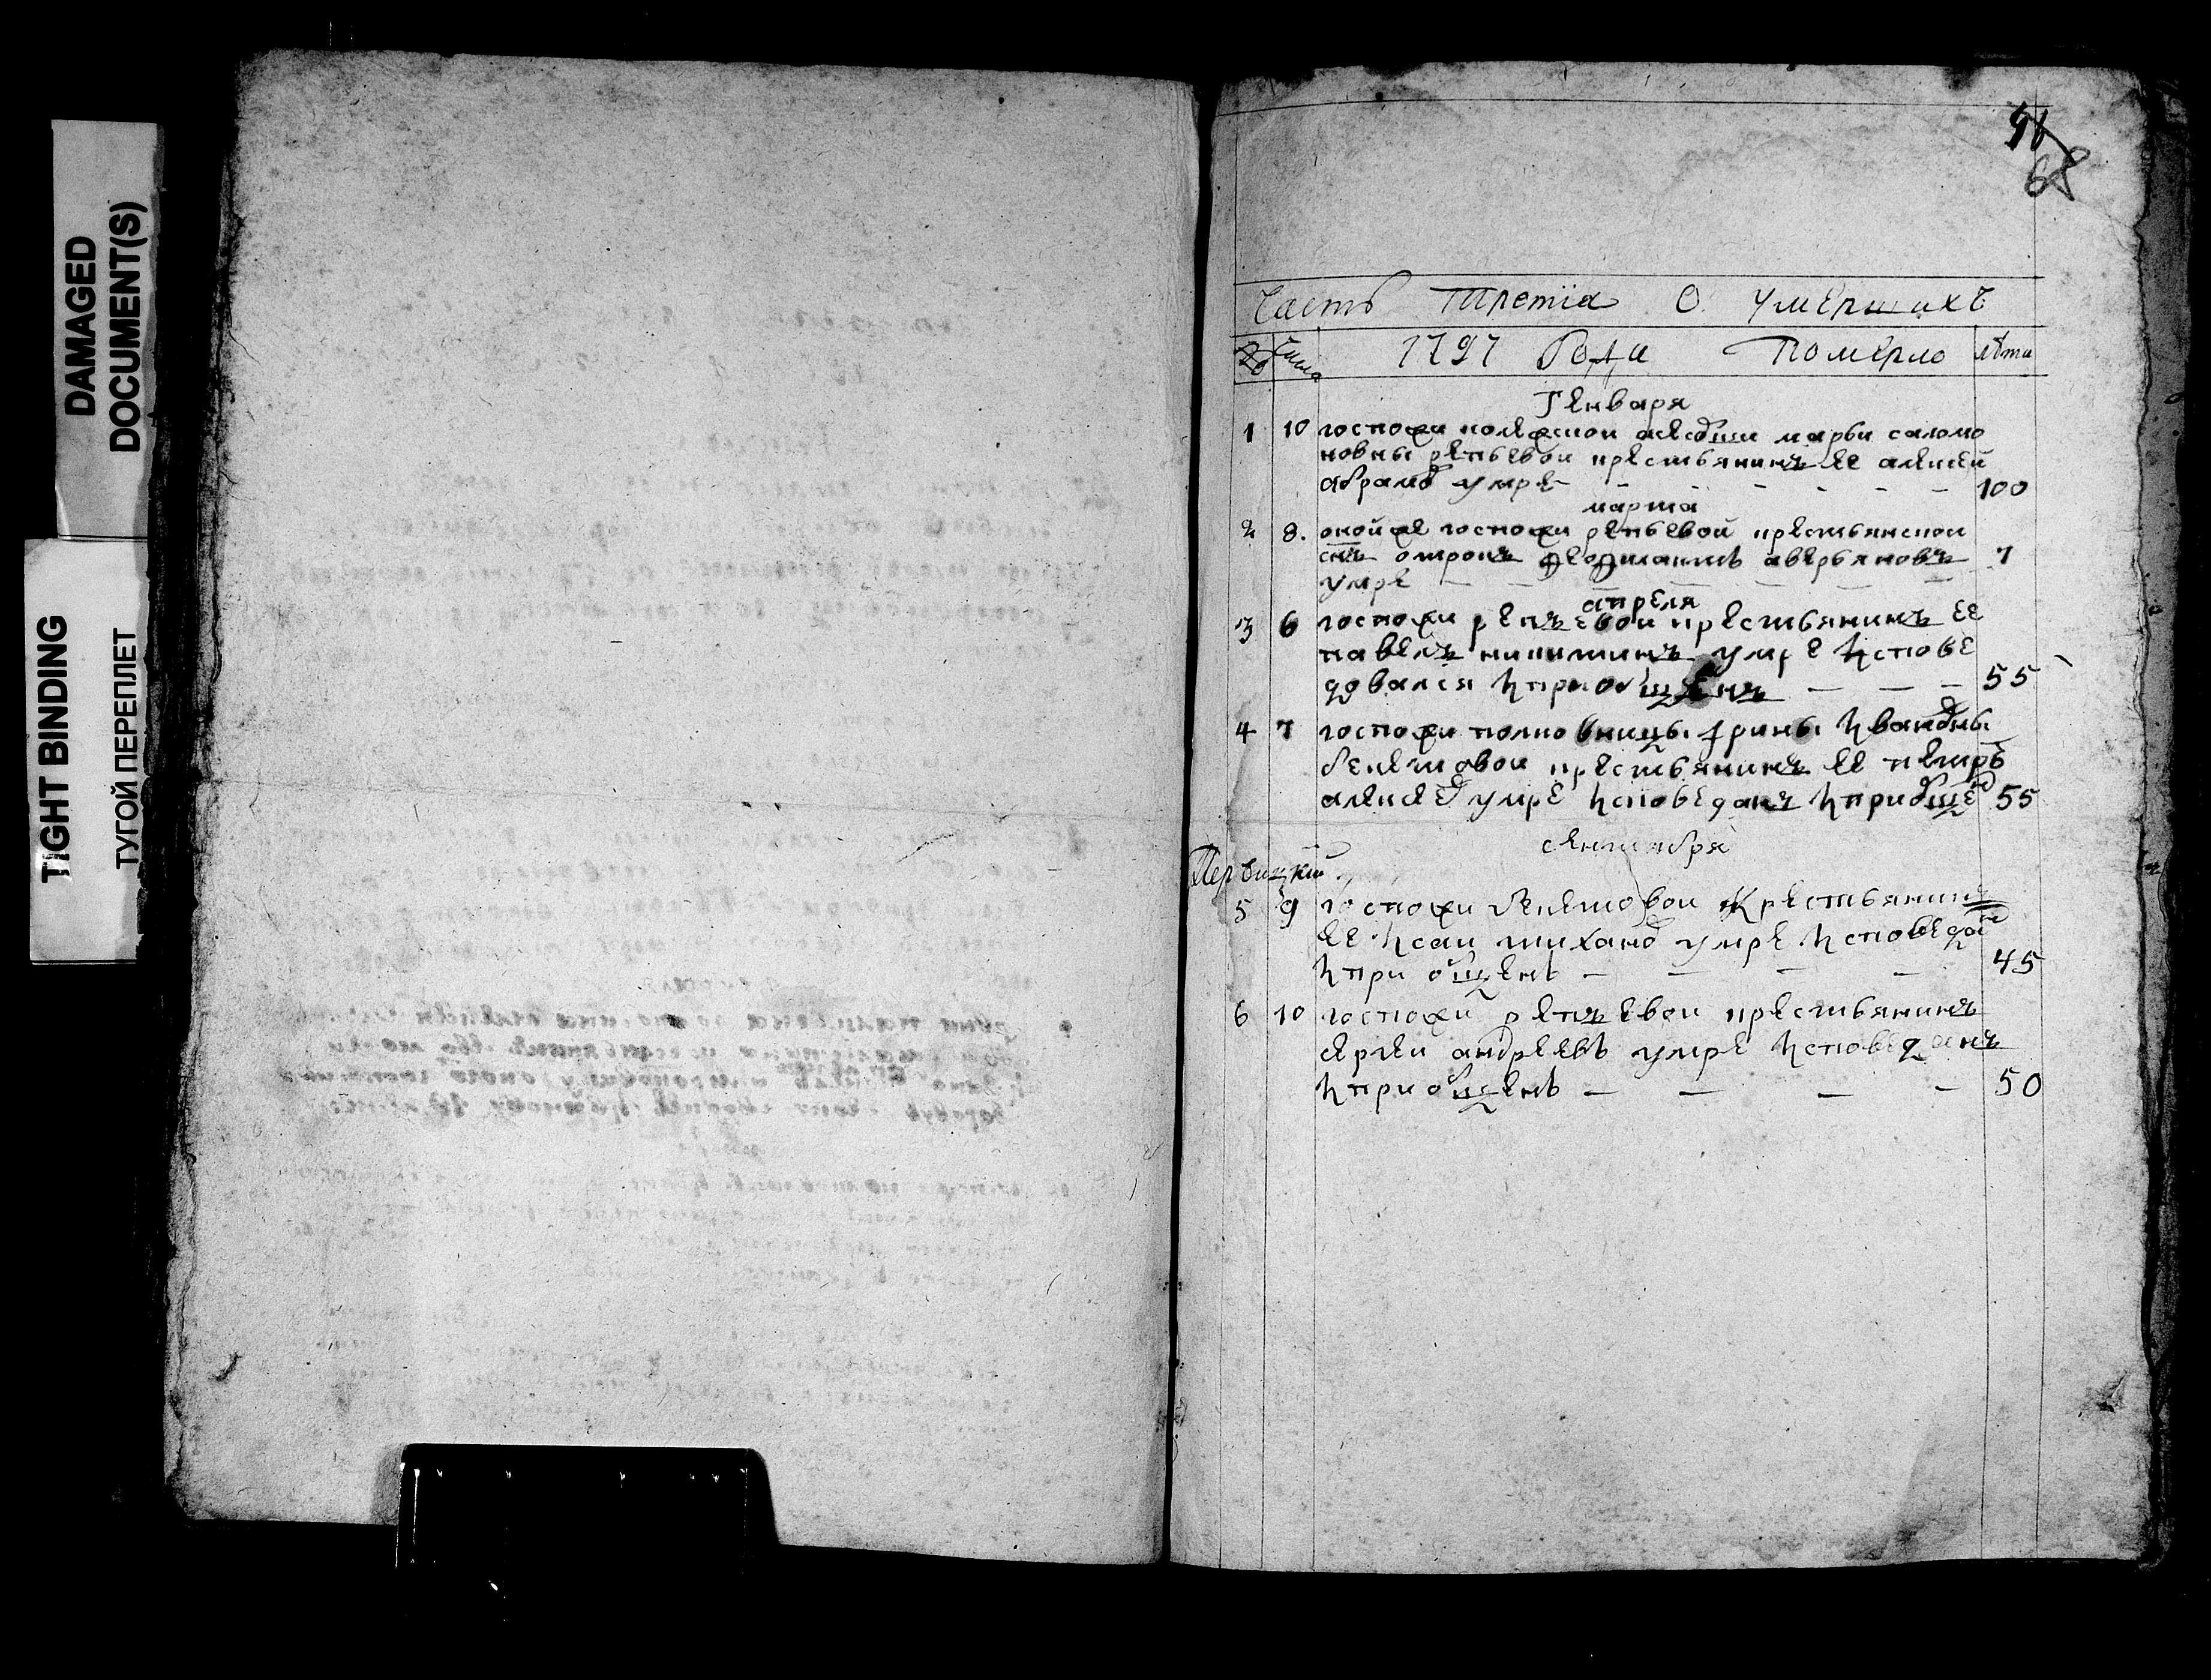 DAMAGED
DOCUMENT(S)
TIGHT BINDING
ТУГОЙ ПЕРЕПЛЕТ
68
Часть Третïа О умершихъ
№ Числа 1797 Года Померло лѣта
Генваря
1 10 госпожи колежской марьи саломо
новны репьевой крестьянинъ ее алексей
абрамо умре 100
марта
2 8. оной же госпожи репьевой крестьянской
снъ отрокъ аверьяновъ 7
умре
апреля
3 6 госпожи репъевой крестьянинъ ее
павелъ никитинъ умре испове
довался и приобщенъ 55
4 7 госпожи полковницы ирины ивановны
бекетовои крестьянинъ ее петръ
алексеев умре исповеданъ и приобще 55
сентября
5 9 госпожи бекетовои крестьянинъ
ее исаи тихано умре исповедан
и приобщенъ 45
6 10 госпожи репъевои крестьянинъ
сергеи андреевъ умре исповеданъ
и приобщенъ 50